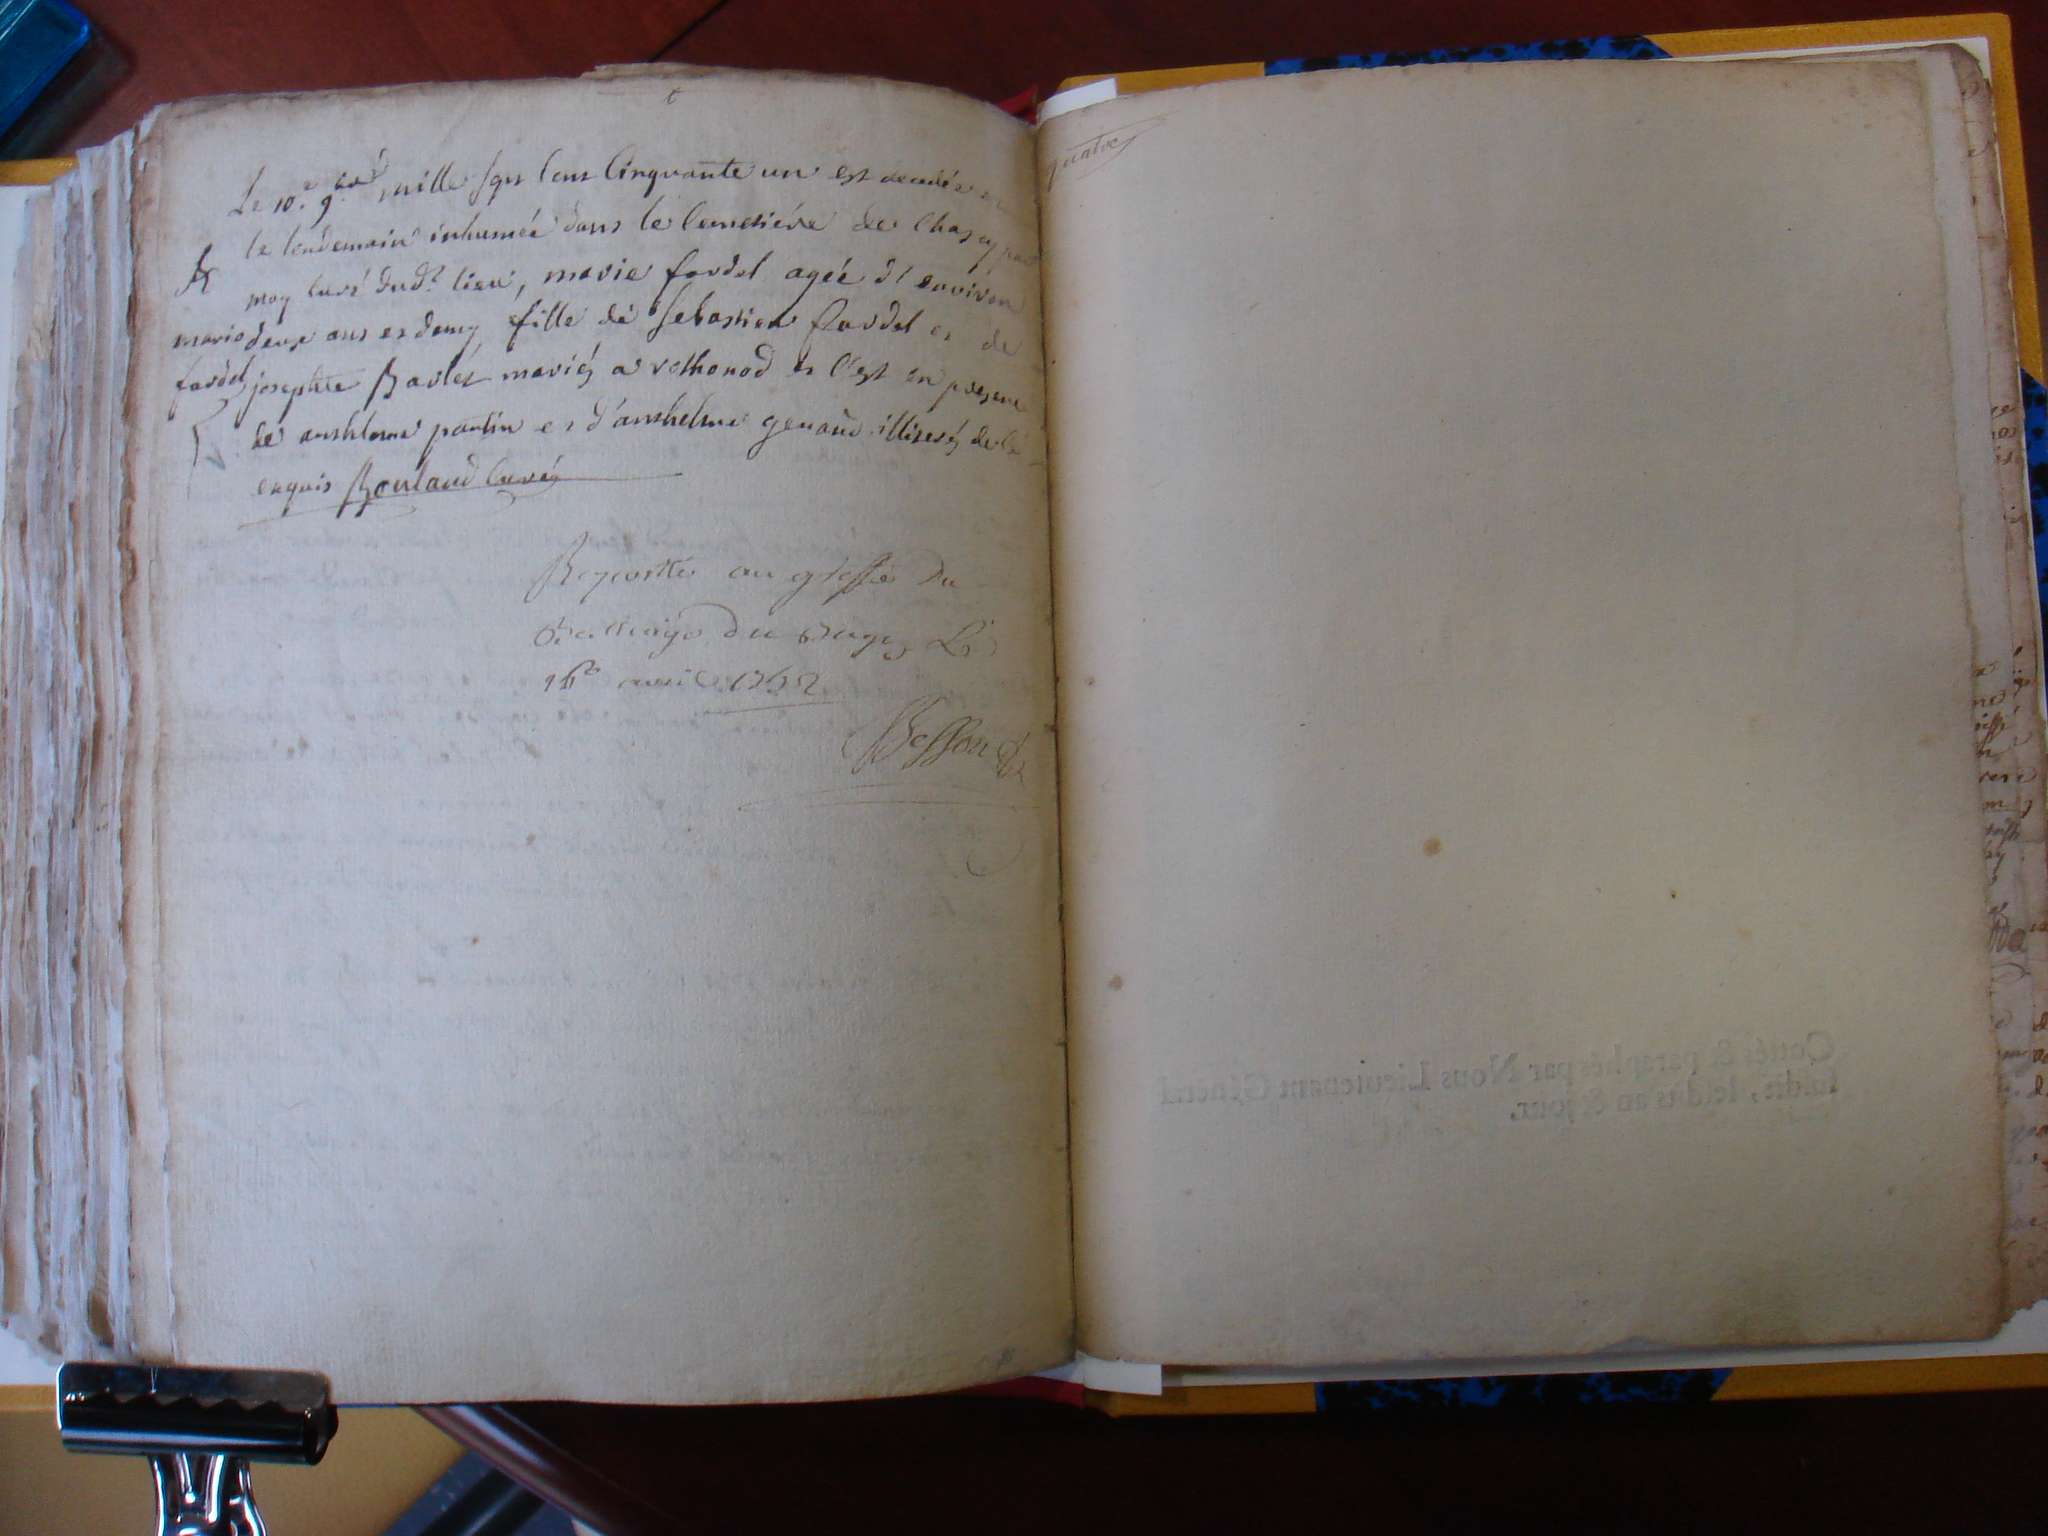 Le 10.e 9.bre mille sept cens Cinquante un est decedée e
le lendemain inhumée dans le Cemetiére de Chazey par
moy curé dud.t lieu, marie fardel agée d'environ
deux ans et demy fille de Sebastien fardel et de
josephte Barlet mariés a rothonod et c'est en presence
de anthelme pantin et d'anthelme genaud illiterés de ce
enquis Roulaud Curé
marie
fardel
Reporttée au greffe du
Bailliage du Bugey Le
16e avril 1752
Besson
quatre
Cottés & paraphés par Nous Lieutenant Général
susdit, lesdits an & jour.